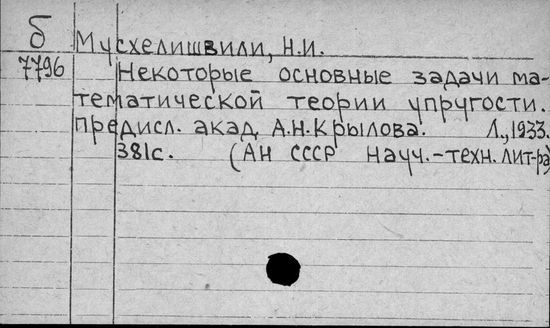 б
Мусхелишвили, Н.И.
7796
Некоторые основные задачи ма-
тематической теории упругости.
Предисл. акад А.Н.Крылова. Л.,1933.
381с. (АН СССР Науч.-техн. лит-ра)